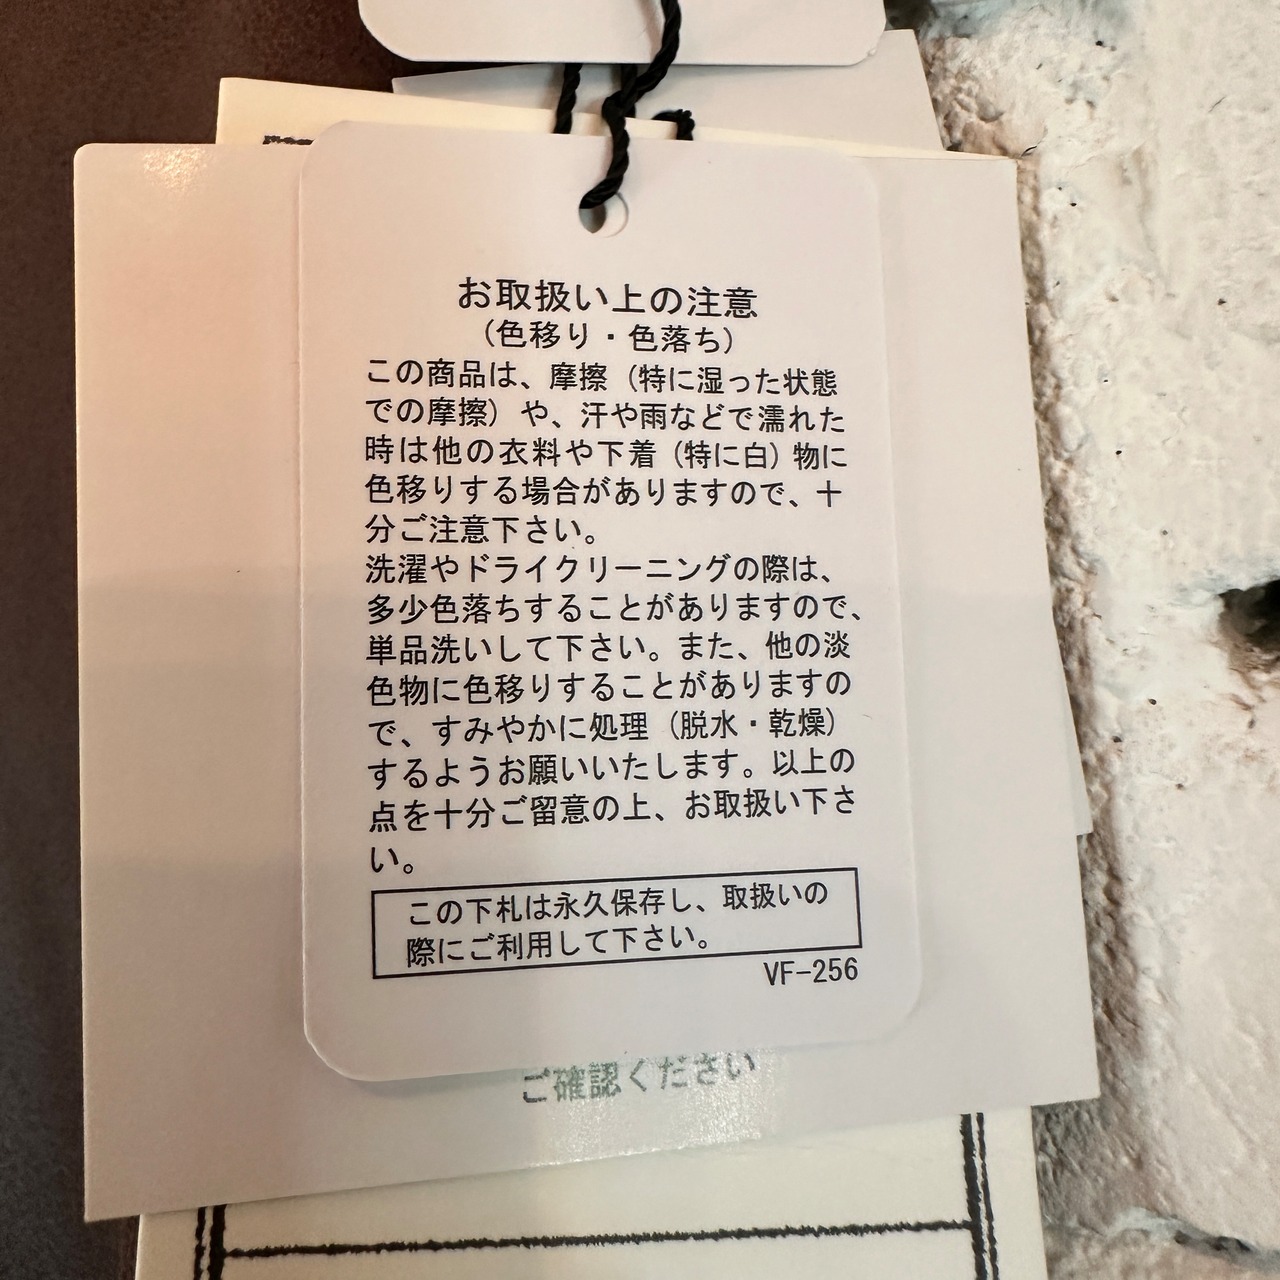 お取扱い上の注意
（色移り・色落ち）
この商品は、摩擦（特に湿った状態
での摩擦）や、汗や雨などで濡れた
時は他の衣料や下着（特に白）物に
色移りする場合がありますので、十
分ご注意下さい。
洗濯やドライクリーニングの際は、
多少色落ちすることがありますので、
単品洗いして下さい。また、他の淡
色物に色移りすることがありますの
で、すみやかに処理（脱水・乾燥）
するようお願いいたします。以上の
点を十分ご留意の上、お取扱い下さ
い。
この下札は永久保存し、取扱いの
際にご利用して下さい。
VF-256
ご確認ください